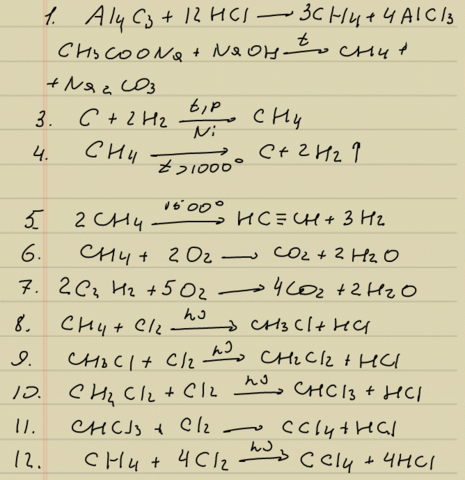 1. Al4C3 + 12HCl → 3CH4 + 4AlCl3
CH3COONa + NaOH →t CH4 +
+ Na2CO3
3. C + 2H2 →t,p Ni CH4
4. CH4 →t>1000° C + 2H2↑
5 2CH4 →1500° HC≡CH + 3H2
6. CH4 + 2O2 → CO2 + 2H2O
7. 2C2H2 + 5O2 → 4CO2 + 2H2O
8. CH4 + Cl2 →hν CH3Cl + HCl
9. CH3Cl + Cl2 →hν CH2Cl2 + HCl
10. CH2Cl2 + Cl2 →hν CHCl3 + HCl
11. CHCl3 + Cl2 → CCl4 + HCl
12. CH4 + 4Cl2 →hν CCl4 + 4HCl